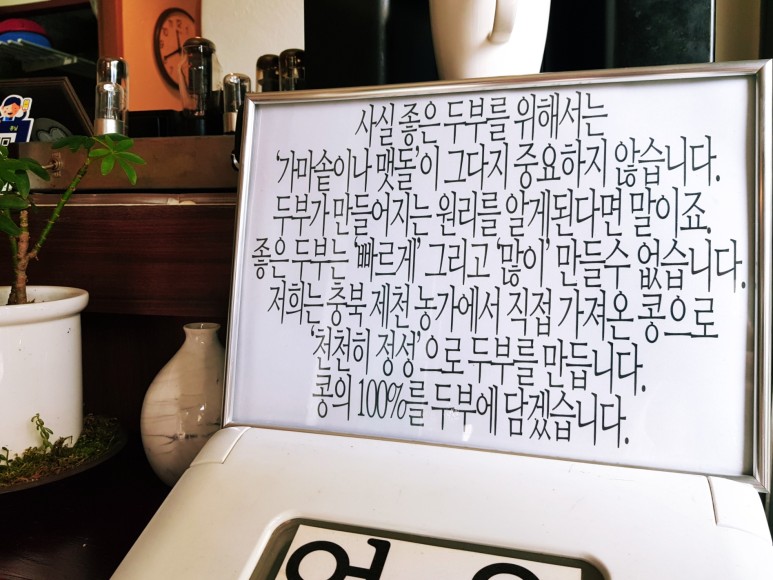 사실 좋은 두부를 위해서는
'가마솥이나 맷돌'이 그다지 중요하지 않습니다.
두부가 만들어지는 원리를 알게된다면 말이죠.
좋은 두부는 '빠르게' 그리고 '많이' 만들수 없습니다.
저희는 충북 제천 농가에서 직접 가져온 콩으로
'천천히 정성'으로 두부를 만듭니다.
콩의 100%를 두부에 담겠습니다.